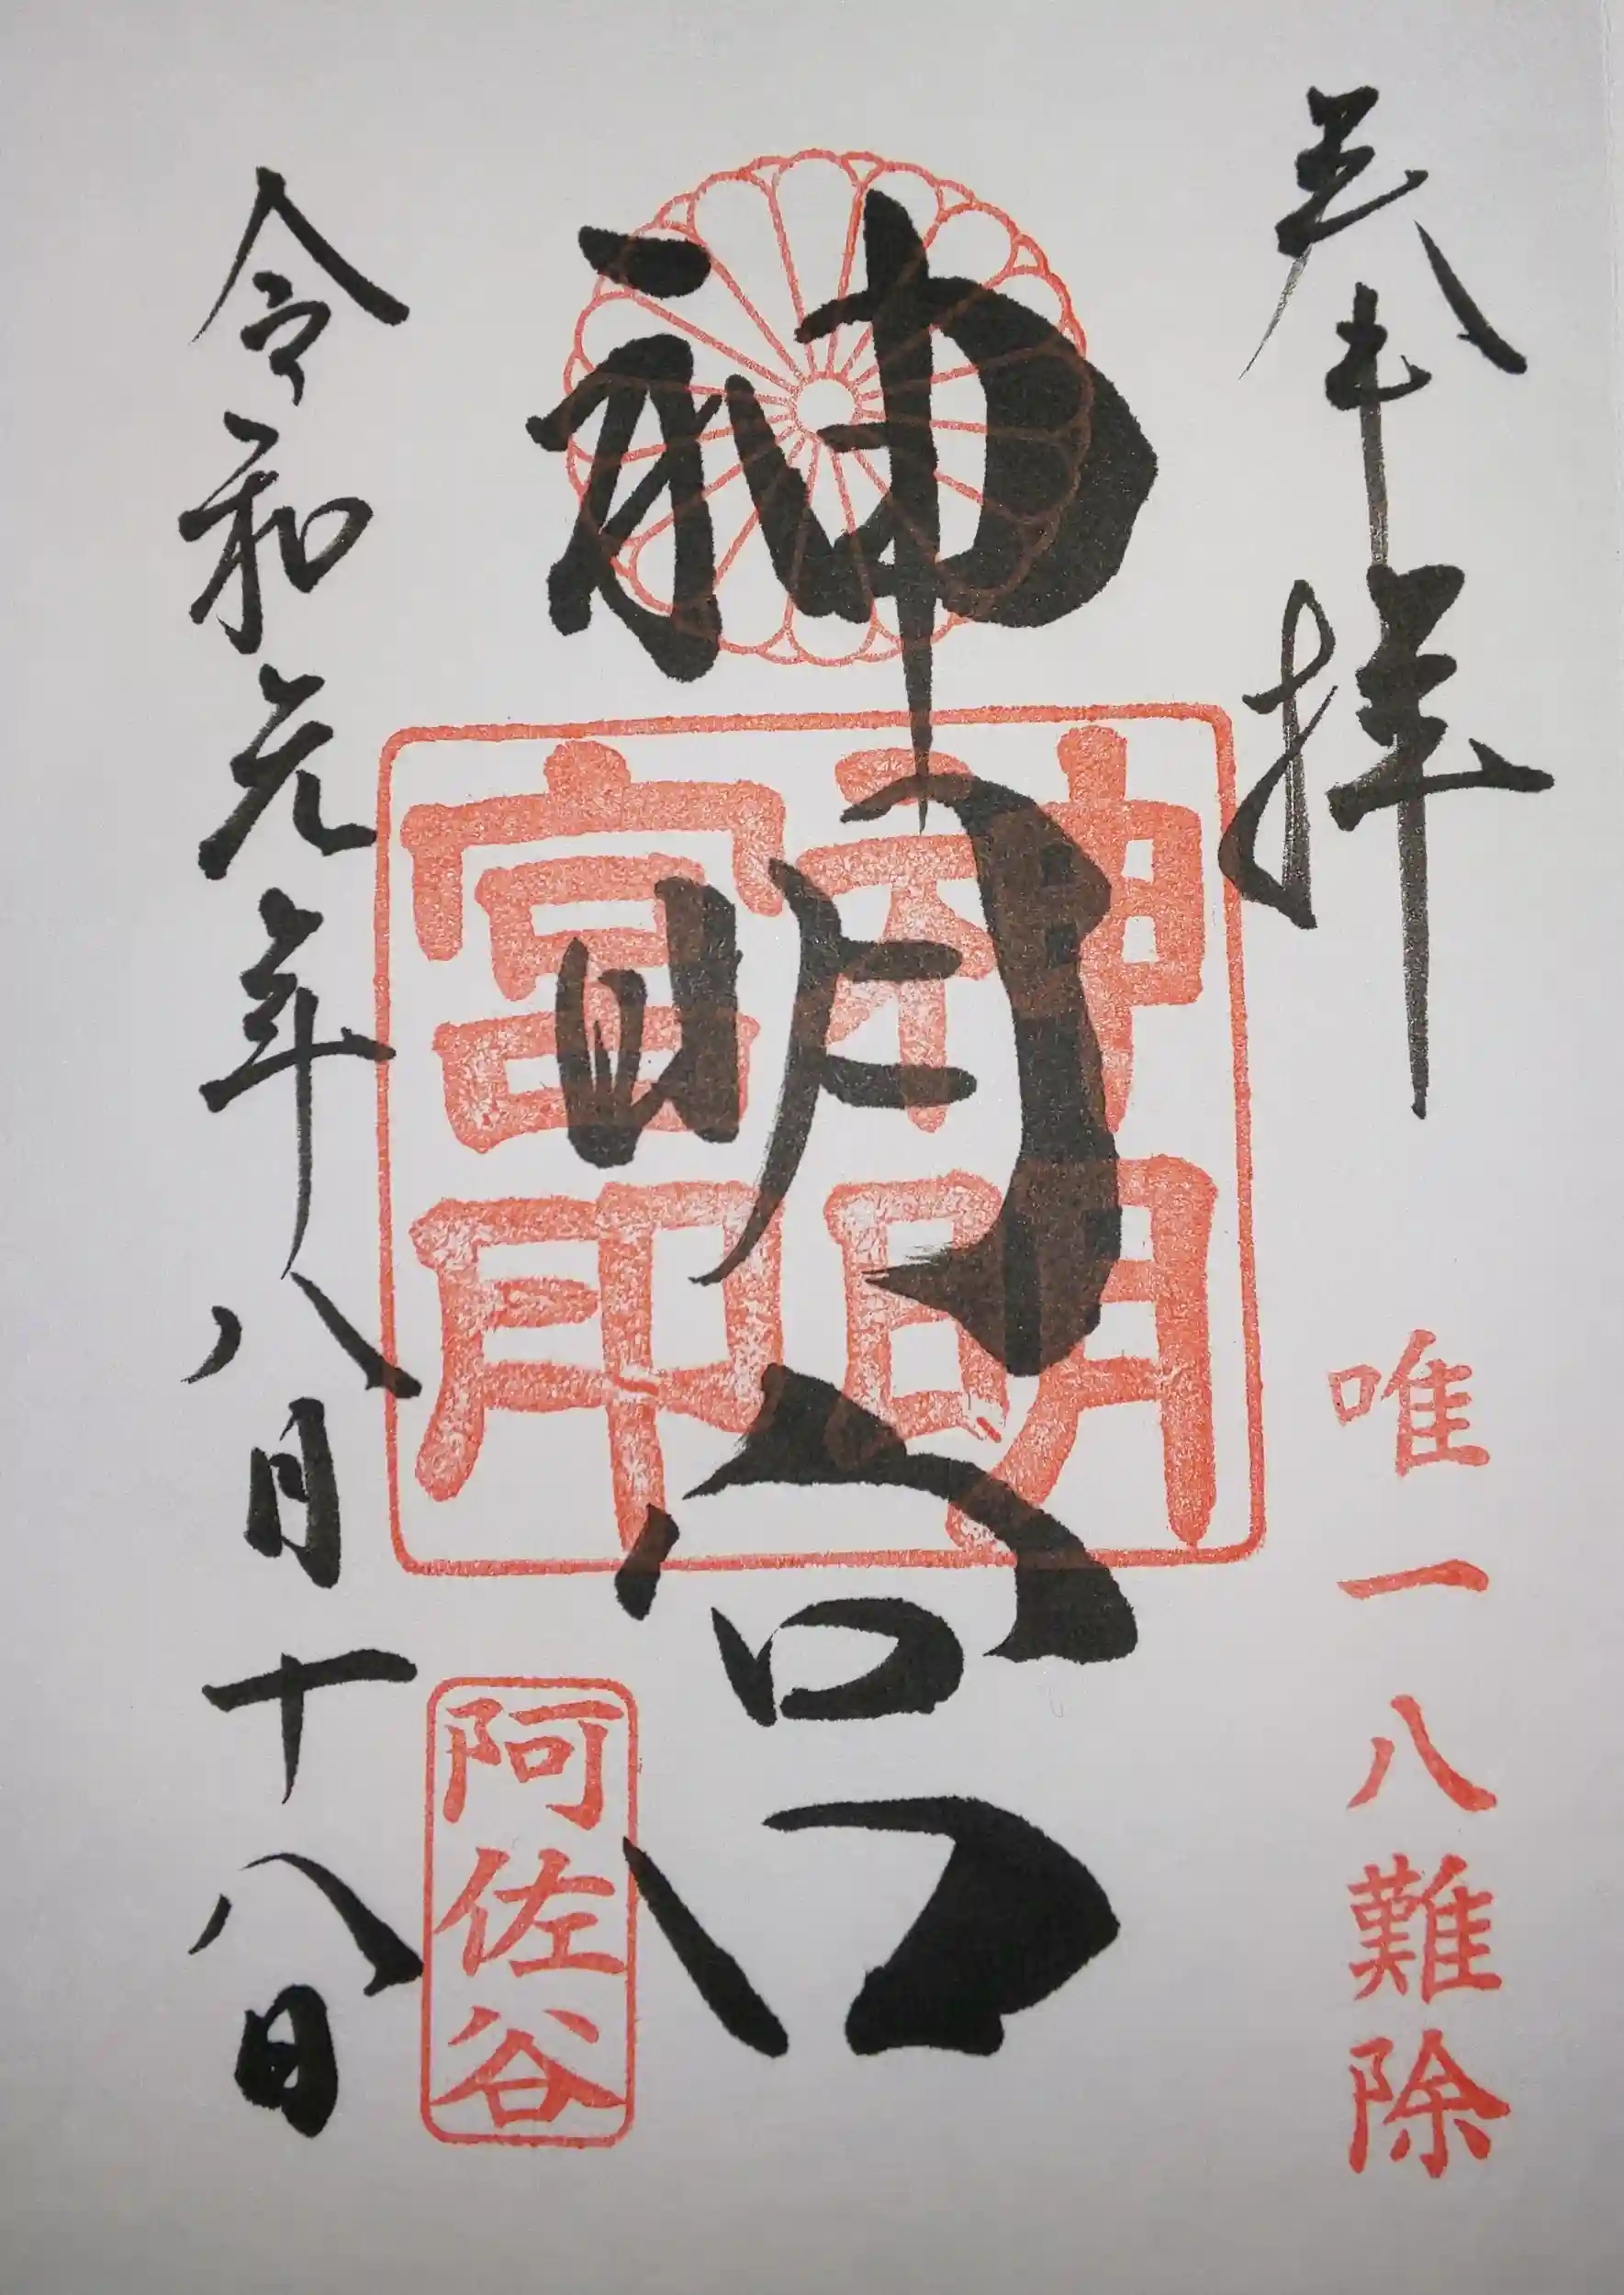 奉拝
唯一八難除
神明宮
神明宮印
阿佐谷
令和元年八月十八日